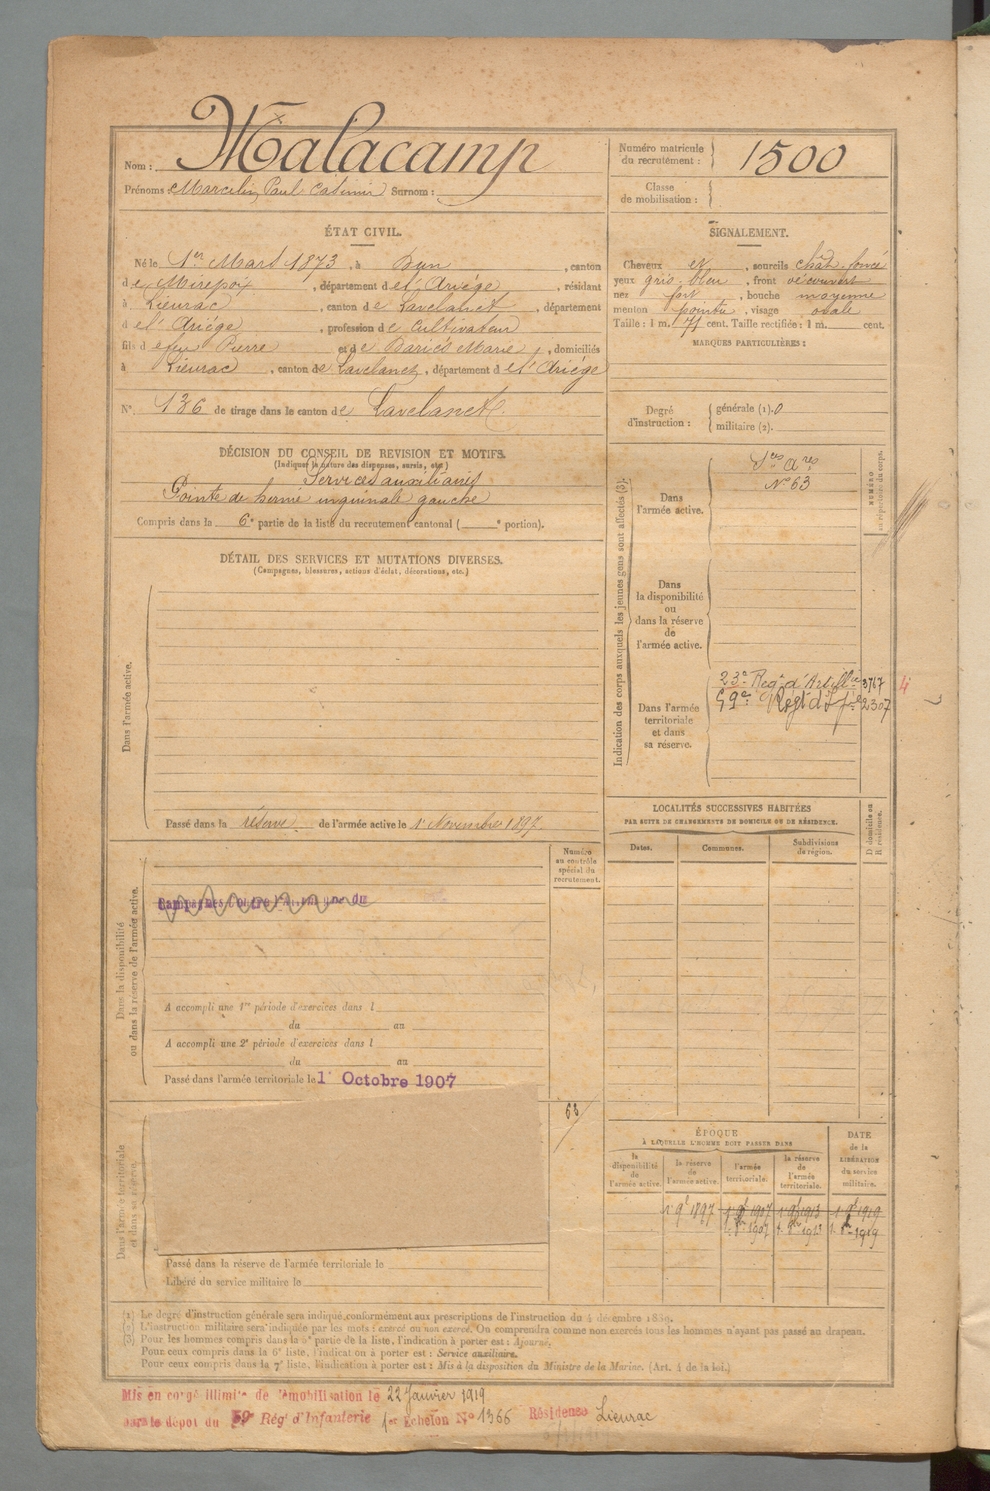 Nom : Malacamp
Prénoms : Marcelin Paul Casimir Surnom :
Numéro matricule du recrutement : 1500
Classe de mobilisation :
ÉTAT CIVIL.
Né le 1er Mars 1873, à Dun, canton
de Mirepoix, département de l'Ariège, résidant
à Lieurac, canton de Lavelanet, département
de l'Ariège, profession de Cultivateur
fils de feu Pierre et de Mario, domiciliés
à Lieurac, canton de Lavelanet, département de l'Ariège
N° 136 de tirage dans le canton de Lavelanet
SIGNALEMENT.
Cheveux et, sourcils chât. foncé
yeux gris bleu, front découvert
nez fort, bouche moyenne
menton pointu, visage ovale
Taille : 1 m. 71 cent. Taille rectifiée : 1 m. cent.
MARQUES PARTICULIÈRES :
Degré d'instruction : générale (1). 0
militaire (2).
DÉCISION DU CONSEIL DE REVISION ET MOTIFS.
(Indiquer la nature des dispenses, sursis, etc.)
Services auxiliaires
Pointe de hernie inguinale gauche
Compris dans la 6e partie de la liste du recrutement cantonal ( e portion).
DÉTAIL DES SERVICES ET MUTATIONS DIVERSES.
(Campagnes, blessures, actions d'éclat, décorations, etc.)
Dans l'armée active.
Passé dans la réserve de l'armée active le 1er Novembre 1897
Indication des corps auxquels les jeunes gens sont affectés (3).
NUMÉRO au répertoire du corps.
Dans l'armée active.
Ses Ares
N° 63
Dans la disponibilité ou dans la réserve de l'armée active.
Dans l'armée territoriale et dans sa réserve.
23e Regt d'Artillie 3767
59e Regt d'Ifie 2307
LOCALITÉS SUCCESSIVES HABITÉES
PAR SUITE DE CHANGEMENTS DE DOMICILE OU DE RÉSIDENCE.
Dates.
Communes.
Subdivisions de région.
D domicile ou R résidence.
Numéro au contrôle spécial du recrutement.
Dans la disponibilité ou dans la réserve de l'armée active.
Campagnes Contre l'Allemagne du
A accompli une 1re période d'exercices dans l
du au
A accompli une 2e période d'exercices dans l
du au
Passé dans l'armée territoriale le 1er Octobre 1907
63
Dans l'armée territoriale et dans sa réserve.
Passé dans la réserve de l'armée territoriale le
Libéré du service militaire le
ÉPOQUE
À LAQUELLE L'HOMME DOIT PASSER DANS
la disponibilité de l'armée active.
la réserve de l'armée active.
l'armée territoriale.
la réserve de l'armée territoriale.
DATE de la LIBÉRATION du service militaire.
1. 9b 1897 1. 9b 1907 1. 9b 1913 1. 9b 1919
1. 8bre 1907 1. 8bre 1913 1. 8bre 1919
(1) Le degré d'instruction générale sera indiqué conformément aux prescriptions de l'instruction du 4 décembre 1889.
(2) L'instruction militaire sera indiquée par les mots : exercé ou non exercé. On comprendra comme non exercés tous les hommes n'ayant pas passé au drapeau.
(3) Pour les hommes compris dans la 5e partie de la liste, l'indication à porter est : Ajourné.
Pour ceux compris dans la 6e liste, l'indication à porter est : Service auxiliaire.
Pour ceux compris dans la 7e liste, l'indication à porter est : Mis à la disposition du Ministre de la Marine. (Art. 4 de la loi.)
Mis en congé illimité de démobilisation le 22 Janvier 1919
par le dépôt du 59e Régt d'Infanterie 1er Echelon N° 1366 Résidence Lieurac